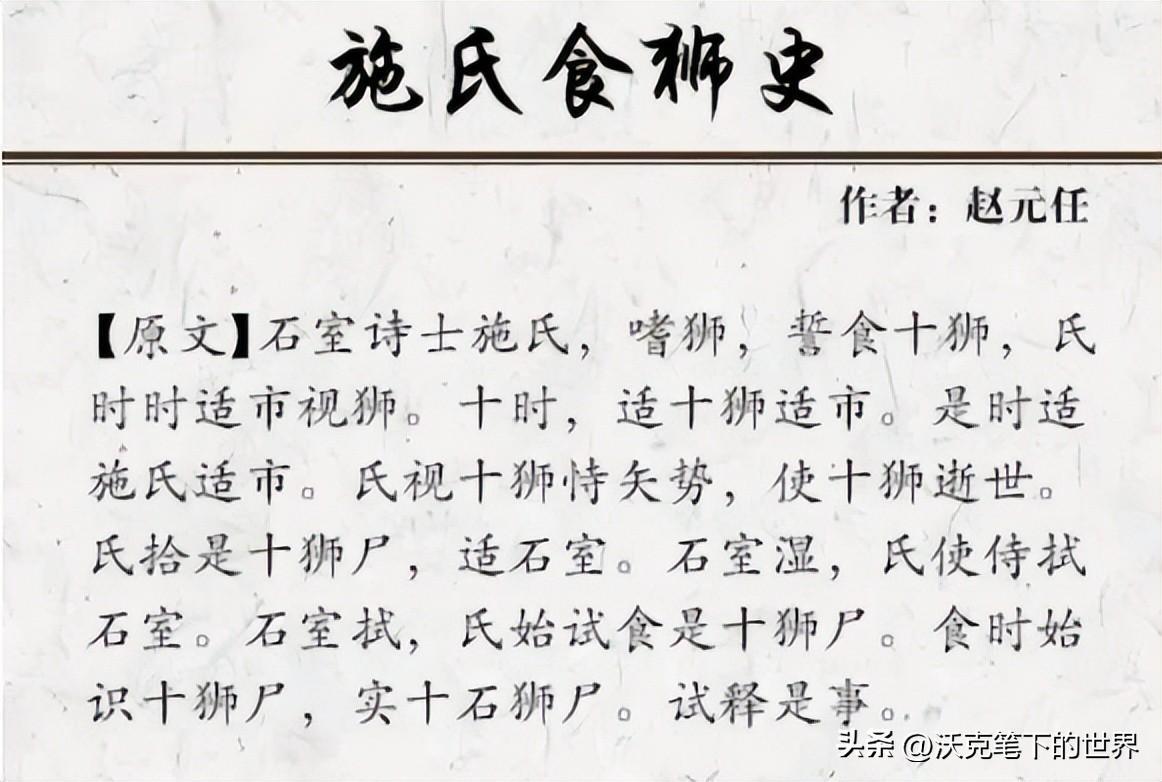 施氏食狮史
作者：赵元任
【原文】石室诗士施氏，嗜狮，誓食十狮，氏
时时适市视狮。十时，适十狮适市。是时适
施氏适市。氏视十狮恃矢势，使十狮逝世。
氏拾是十狮尸，适石室。石室湿，氏使侍拭
石室。石室拭，氏始试食是十狮尸。食时始
识十狮尸，实十石狮尸。试释是事。
头条 @沃克笔下的世界